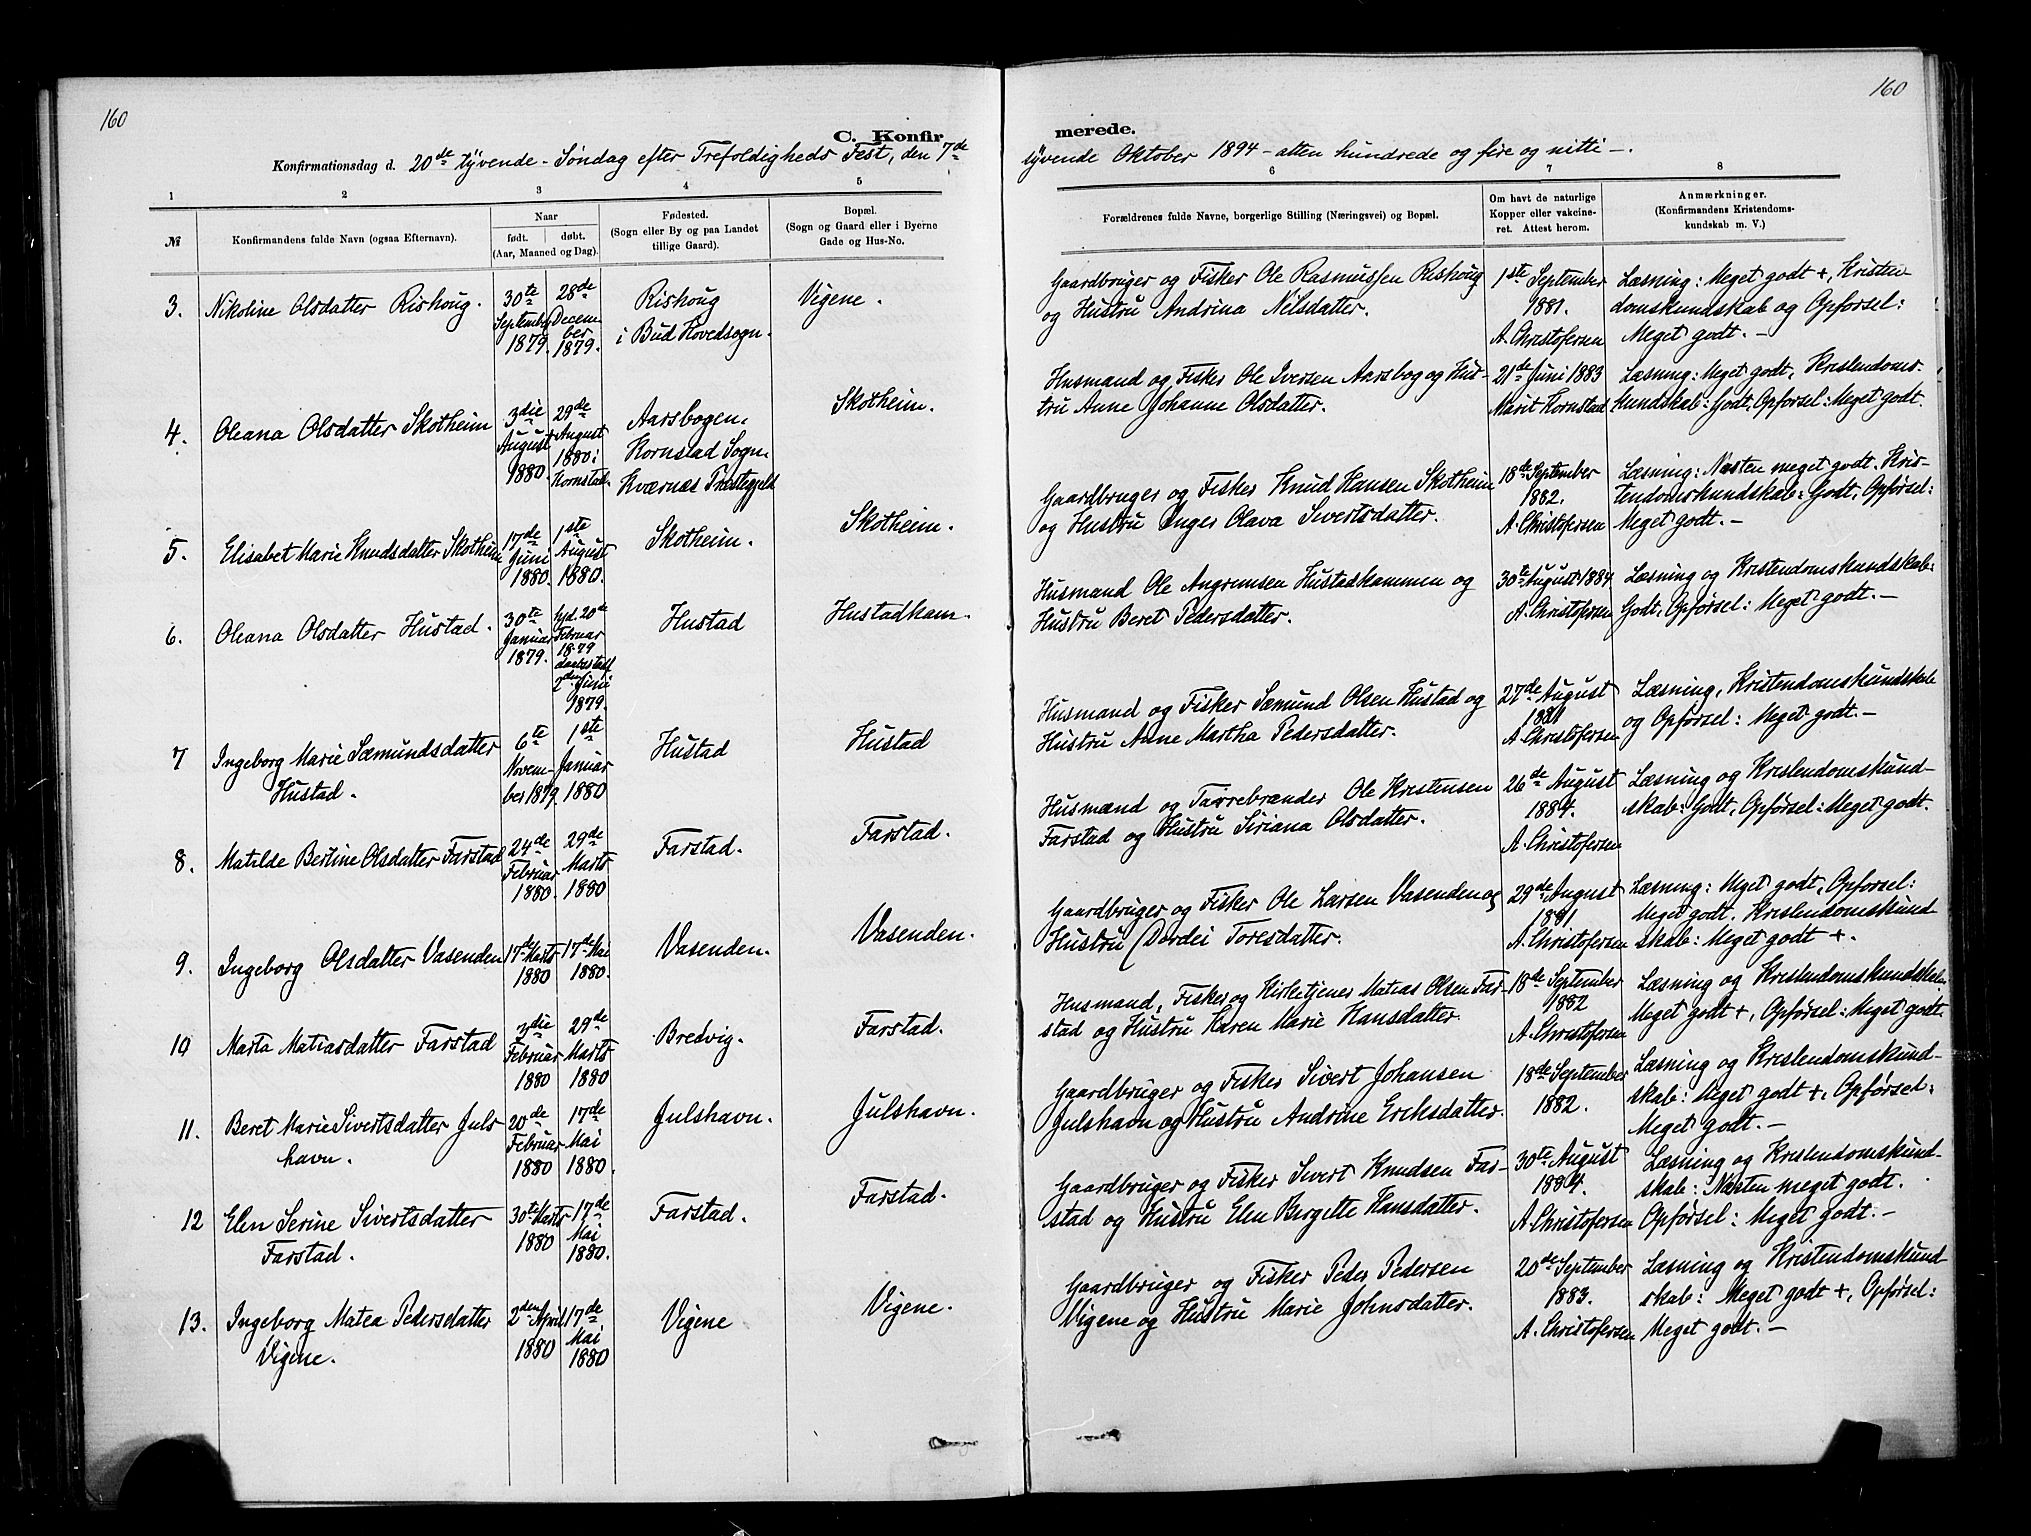 160
160
C. Konfir
merede.
Konfirmationsdag d. 20de tyvende - Søndag efter Trefoldigheds Fest, den 7de
syvende Oktober 1894 - atten hundrede og fire og nitti -.
1 2 3 4 5
6 7 8
№
Konfirmandens fulde Navn (ogsaa Efternavn).
Naar
født. døbt.
(Aar, Maaned og Dag).
Fødested.
(Sogn eller By og paa Landet
tillige Gaard).
Bopæl.
(Sogn og Gaard eller i Byerne
Gade og Hus-No.
Forældrenes fulde Navne, borgerlige Stilling (Næringsvei) og Bopæl.
Om havt de naturlige
Kopper eller vakcine-
ret. Attest herom.
Anmærkninger.
(Konfirmandens Kristendoms-
kundskab m. V.)
3. Nikoline Olsdatter Rishoug.
30te
September
1879.
28de
Decem
ber
1879.
Rishoug
i Bud Hovedsogn.
Vigene.
Gaardbruger og Fisker Ole Rasmussen Rishoug
og Hustru Andrina Nilsdatter.
1ste September
1881.
A. Christofersen
Læsning: Meget godt +, Kristen
domskundskab og Opførsel:
Meget godt. -
4. Oleana Olsdatter Skotheim
3die
August
1880.
29de
August
1880 i
Kornstad.
Aarsbogen.
Kornstad Sogn.
Kværnæs Præstegjeld
Skotheim.
Husmand og Fisker Ole Iversen Aarsbog og Hus-
tru Anne Johanne Olsdatter.
21de Juni 1883
Marit Kornstad
Læsning: Meget godt, Kristendoms-
kundskab: Godt, Opførsel: Meget godt.
5. Elisabet Marie Knudsdatter Skotheim
17de
Juni
1880.
1ste
August
1880.
Skotheim.
Skotheim.
Gaardbruger og Fisker Knud Hansen Skotheim
og Hustru Inger Olava Sivertsdatter.
18de September
1882.
A. Christofersen
Læsning: Næsten meget godt. Kris-
tendomskundskab: Godt, Opførsel:
Meget godt. -
6. Oleana Olsdatter Hustad.
30te
Januar
1879.
hjd. 20de
Februar
1879
2den Juni
1879.
Hustad
Hustadkam.
Husmand Ole Angremsen Hustadkammen og
Hustru Beret Pedersdatter.
30te August 1884
A. Christofersen
Læsning og Kristendomskundskab:
Godt, Opførsel: Meget godt. -
7 Ingeborg Marie Sæmundsdatter
Hustad.
6te
Novem-
ber 1879.
1ste
Januar
1880
Hustad
Hustad
Husmand og Fisker Sæmund Olsen Hustad og
Hustru Anne Martha Pedersdatter.
27de August
1881
A. Christofersen
Læsning, Kristendomskundskab
og Opførsel: Meget godt. -
8. Matilde Bertine Olsdatter Farstad
24de
Februar
1880.
29de
Marts
1880
Farstad.
Farstad.
Husmand og Tarrebrænder Ole Kristensen
Farstad og Hustru Siriana Olsdatter.
26de August
1884.
A. Christofersen
Læsning og Kristendomskund-
skab: Godt, Opførsel: Meget godt.
9. Ingeborg Olsdatter Vasenden
17de Marts
1880
17de Mai
1880.
Vasenden.
Vasenden.
Gaardbruger og Fisker Ole Larsen Vasenden og
Hustru Dordei Toresdatter.
29de August
1881
A. Christofersen
Læsning: Meget godt, Opførsel:
Meget godt. Kristendomskund
skab: Meget godt +.
10 Marta Matiasdatter Farstad
3die
Februar
1880
29de
Marts
1880
Bredvig.
Farstad.
Husmand, Fisker og Kirketjener Matias Olsen Far-
stad og Hustru Karen Marie Hansdatter.
18de September
1882
A. Christofersen
Læsning og Kristendomskundskab:
Meget godt +, Opførsel: Meget godt.
11. Beret Marie Sivertsdatter Juls
havn.
20de
Februar
1880
17de
Mai
1880.
Julshavn.
Julshavn.
Gaardbruger og Fisker Sivert Johansen
Julshavn og Hustru Andrine Eriksdatter.
18de September
1882.
Læsning og Kristendomskund-
skab: Meget godt +, Opførsel:
Meget godt. -
12 Elen Serine Sivertsdatter
Farstad.
30te Marts
1880
17de
Mai
1880.
Farstad.
Farstad.
Gaardbruger og Fisker Sivert Knudsen Far-
stad og Hustru Elen Bergitte Hansdatter.
30te August
1884.
A. Christofersen
Læsning og Kristendomskund-
skab: Næsten meget godt.
Opførsel: Meget godt. -
13. Ingeborg Matea Pedersdatter
Vigene.
2den April
1880
17de
Mai
1880
Vigene
Vigene.
Gaardbruger og Fisker Peder Pedersen
Vigene og Hustru Marie Johnsdatter.
20de September
1883.
A. Christofersen
Læsning og Kristendomskund
skab: Meget godt +, Opførsel:
Meget godt. -